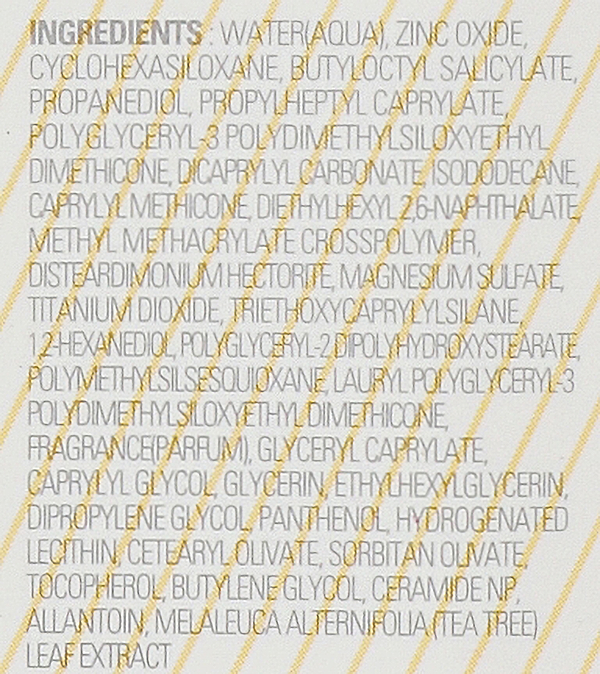 INGREDIENTS : WATER(AQUA), ZINC OXIDE,
CYCLOHEXASILOXANE, BUTYLOCTYL SALICYLATE,
PROPANEDIOL, PROPYLHEPTYL CAPRYLATE,
POLYGLYCERYL-3 POLYDIMETHYLSILOXYETHYL
DIMETHICONE, DICAPRYLYL CARBONATE, ISODODECANE,
CAPRYLYL METHICONE, DIETHYLHEXYL 2,6-NAPHTHALATE,
METHYL METHACRYLATE CROSSPOLYMER,
DISTEARDIMONIUM HECTORITE, MAGNESIUM SULFATE,
TITANIUM DIOXIDE, TRIETHOXYCAPRYLYLSILANE,
1,2-HEXANEDIOL, POLYGLYCERYL-2 DIPOLYHYDROXYSTEARATE,
POLYMETHYLSILSESQUIOXANE, LAURYL POLYGLYCERYL-3
POLYDIMETHYLSILOXYETHYL DIMETHICONE,
FRAGRANCE(PARFUM), GLYCERYL CAPRYLATE,
CAPRYLYL GLYCOL, GLYCERIN, ETHYLHEXYLGLYCERIN,
DIPROPYLENE GLYCOL, PANTHENOL, HYDROGENATED
LECITHIN, CETEARYL OLIVATE, SORBITAN OLIVATE,
TOCOPHEROL, BUTYLENE GLYCOL, CERAMIDE NP,
ALLANTOIN, MELALEUCA ALTERNIFOLIA (TEA TREE)
LEAF EXTRACT